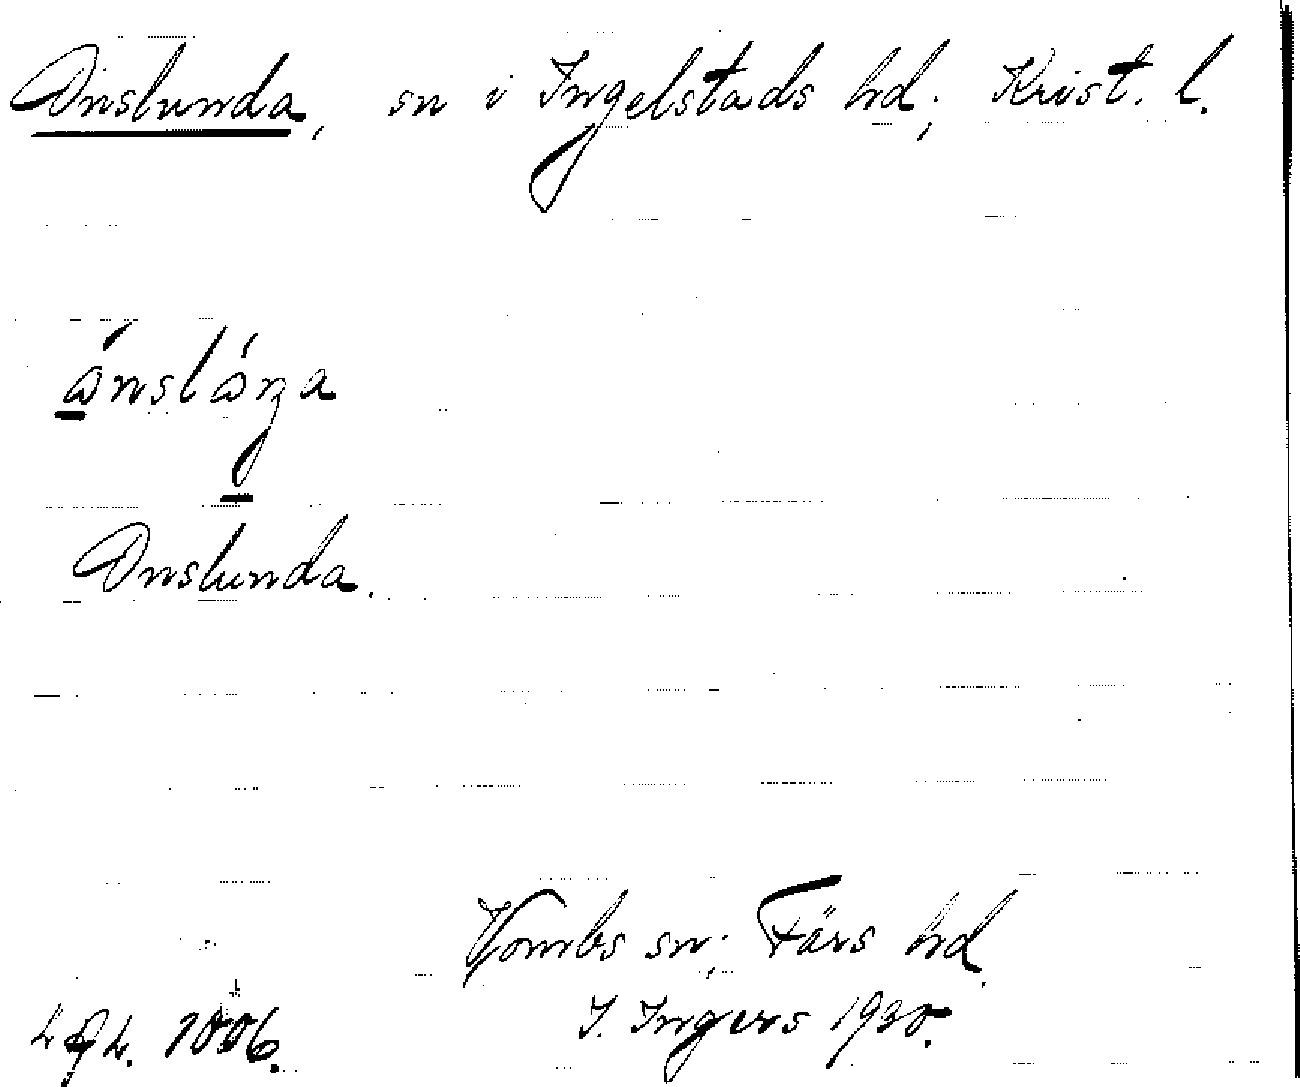 Onslunda, sn i Ingelstads hd; Krist. l.
ånslåŋa
Onslunda.
Vombs sn; Färs hd.
I. Ingers 1920.